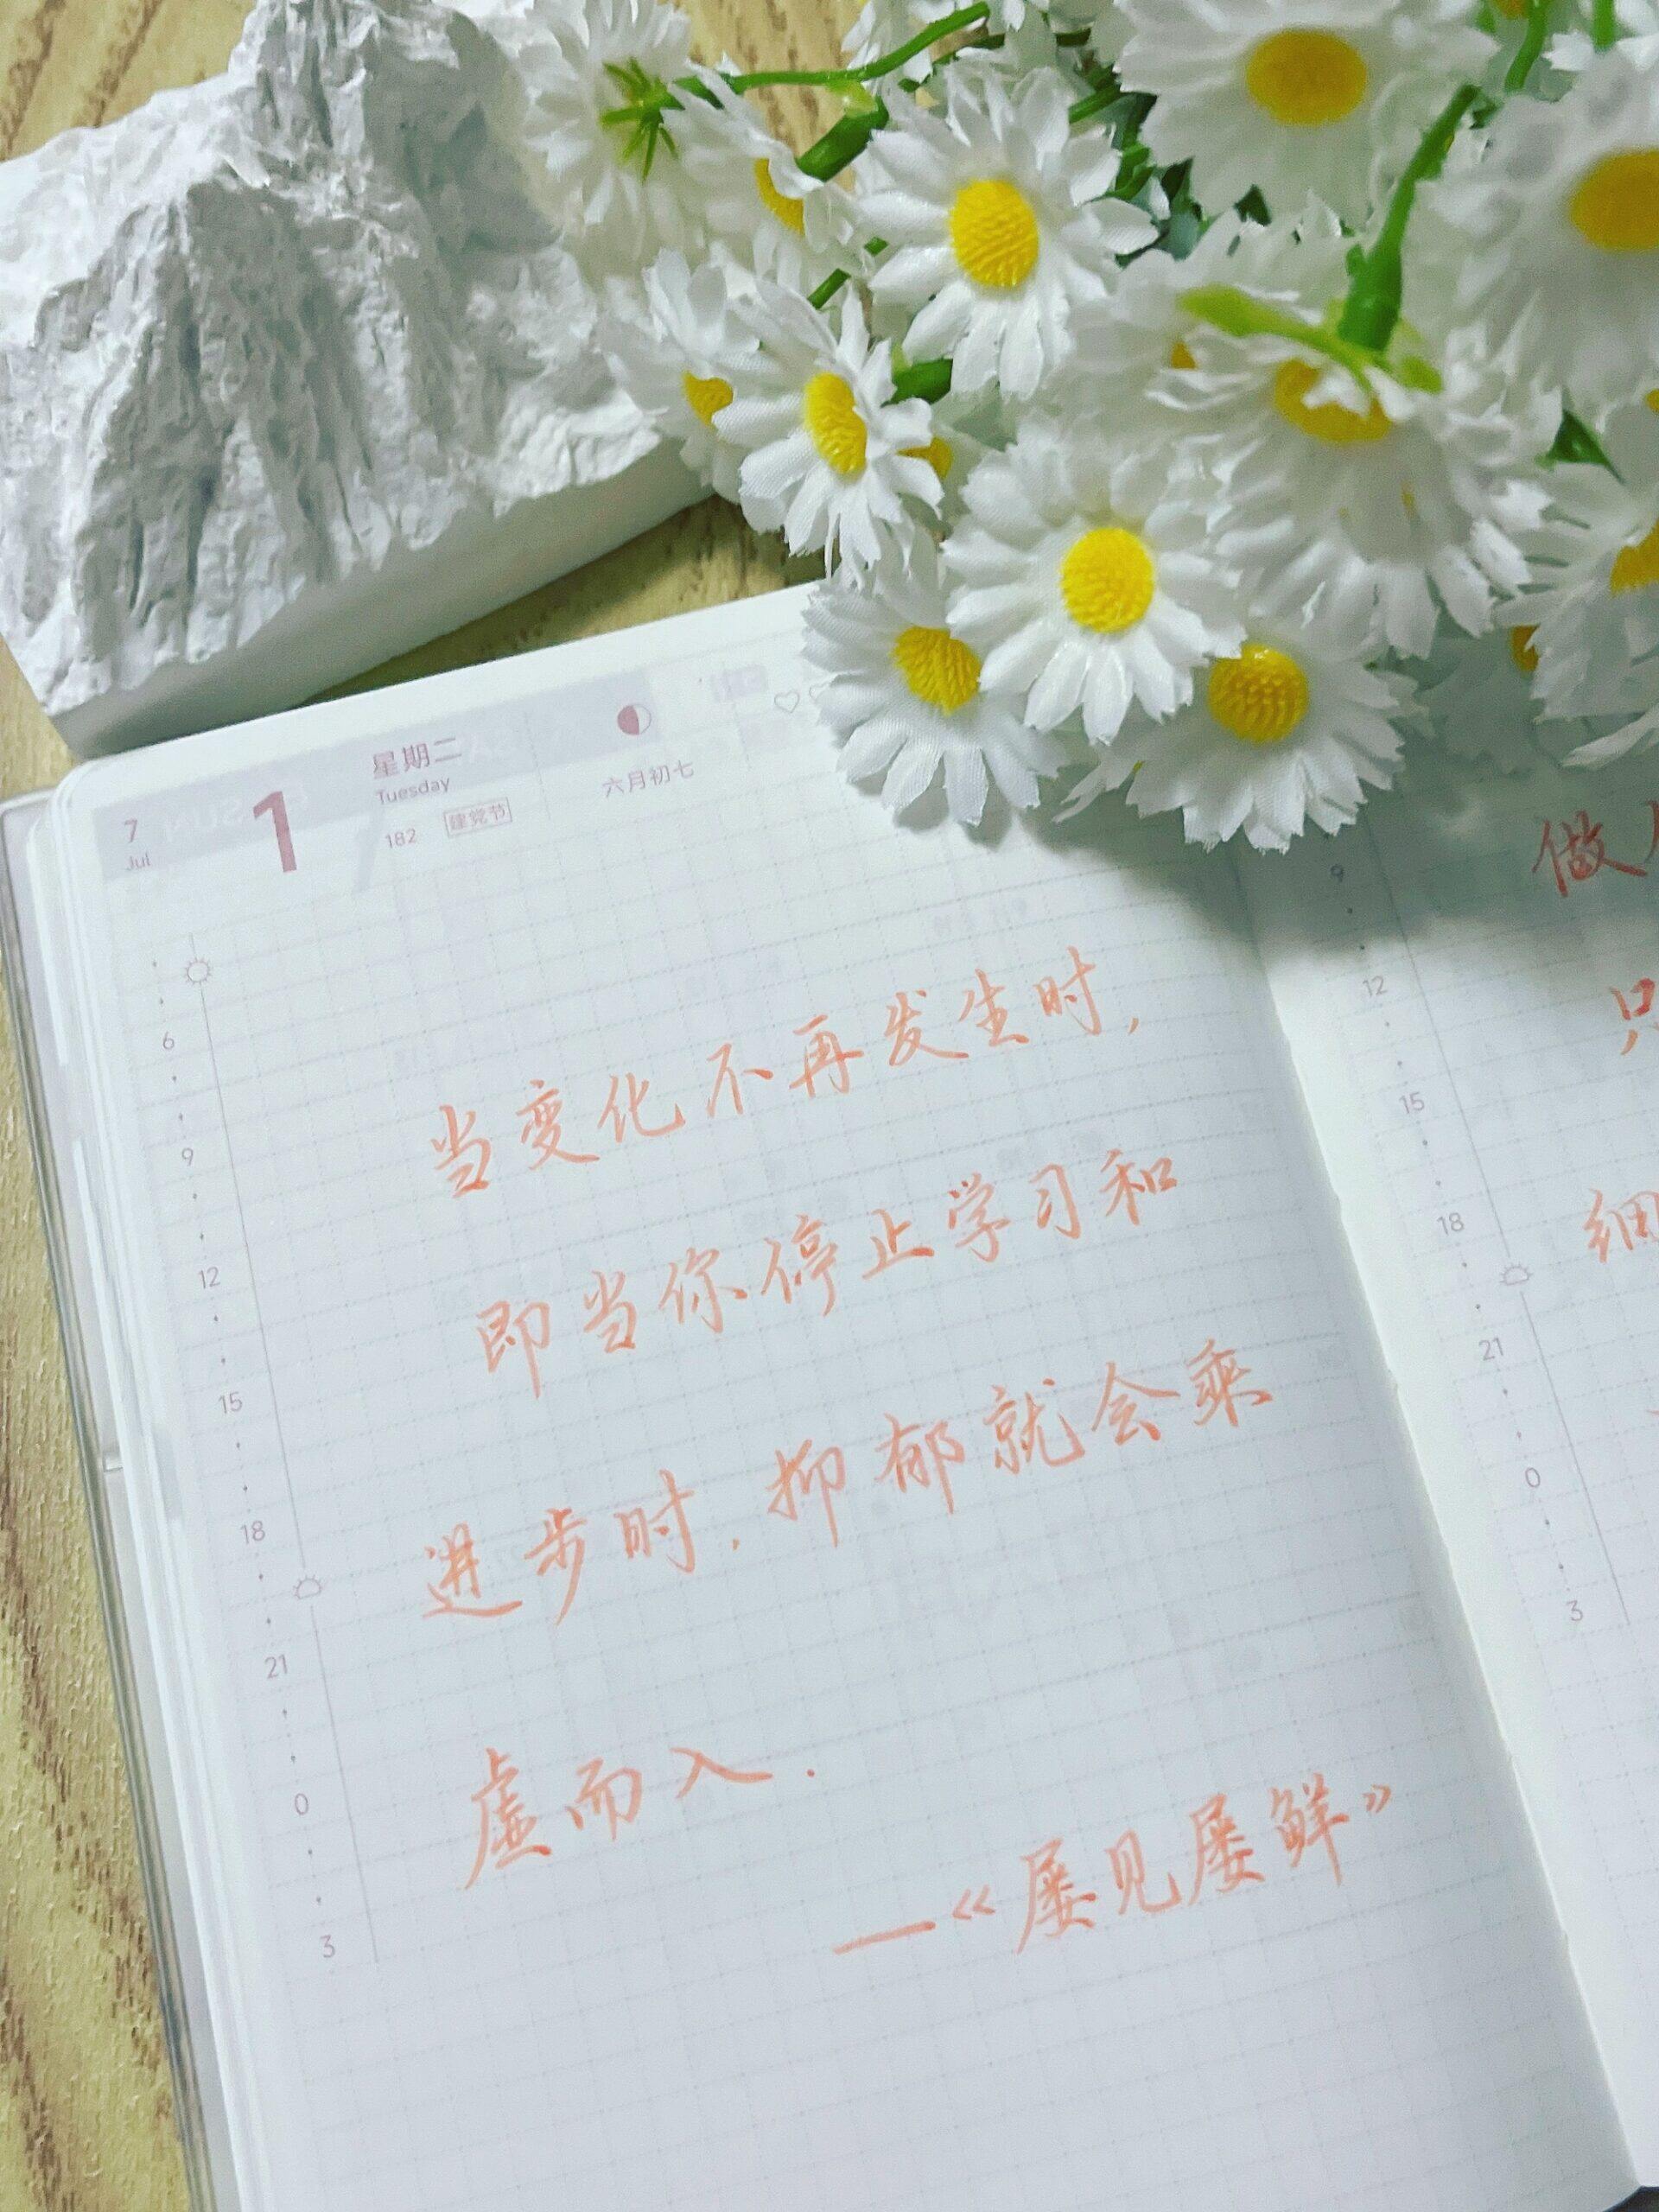 7
Jul
1
星期二
Tuesday
182 建党节
六月初七
6
9
12
15
18
21
0
3
当变化不再发生时，
即当你停止学习和
进步时.抑郁就会乘
虚而入.
—《屡见屡鲜》
9
12
15
18
21
0
3
做
只
细